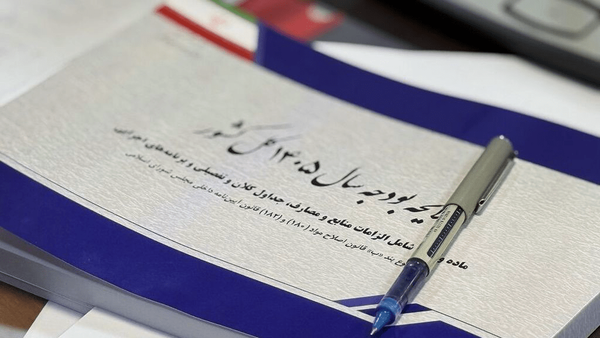 لایحه بودجه سال ۱۴۰۵ کل کشور
ماده و شامل الزامات منابع و مصارف، جداول کلان و تفصیلی و برنامه‌های اجرایی
موضوع بند «ب» قانون اصلاح مواد (۱۸۰) و (۱۸۲) قانون آیین‌نامه داخلی مجلس شورای اسلامی